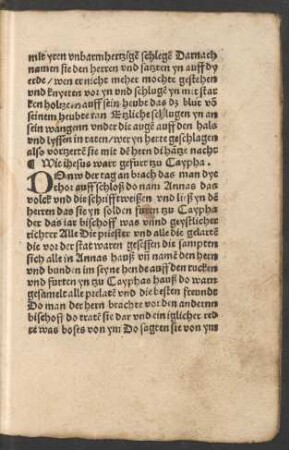 mit yren vnbarmhertzigē schlegē Darnach
namen sie den herren vnd satzten yn auff dy
erde / wen er nicht meher mochte gestehen
vnd knyeten vor yn vnd schlugē yn mit star
ken holtzern auff sein heubt das dz blut võ
seinem heubte ran Etzliche schlugen yn an
sein wangenn vnder die augē auff den hals
vnd lyssen in raten / wer yn herte geschlagen
also vortzerte sie mit dē hern di hātze nacht
¶ Wie ihesus wart gefurt zu Caypha.
DOnw der tag an brach das man dye
thor auff schloß do nam Annas das
volck vnd die schrifftweißen vnd liß yn dē
herren das sie yn solden furen tzu Caypha
der das iar bischoff was vnnd geystlichter
richter Alle Die priester vnd alle die gelartē
die vor der stat waren gesessen die sampten
sich alle in Annas hauß vñ namē den hern
vnd bunden im seyne hende auff den rucken
vnd furten yn zu Cayphas hauß do warē
gesamelt alle prelatē vnd die besten freunde
Do man der hern brachte vor den andernn
bischoff do tratē sie dar vnd ein iglicher red
te was boses von ym Do sagten sie von ym